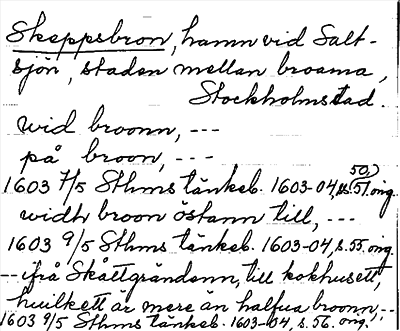 Skeppsbron, hamn vid Salt-
sjön, staden mellan broarna,
Stockholms stad.
vid broonn, ---
på broon, ---
1603 7/5 Sthms tänkeb. 1603-04, s. 50, 51, orig.
widh broon östann till, ---
1603 9/5 Sthms tänkeb. 1603-04, s. 55, orig.
--- ifrå Skåttgrändenn, till kokhusett,
huilkett är mere än halfua broonn, --
1603 9/5 Sthms tänkeb. 1603-04, s. 56. orig.